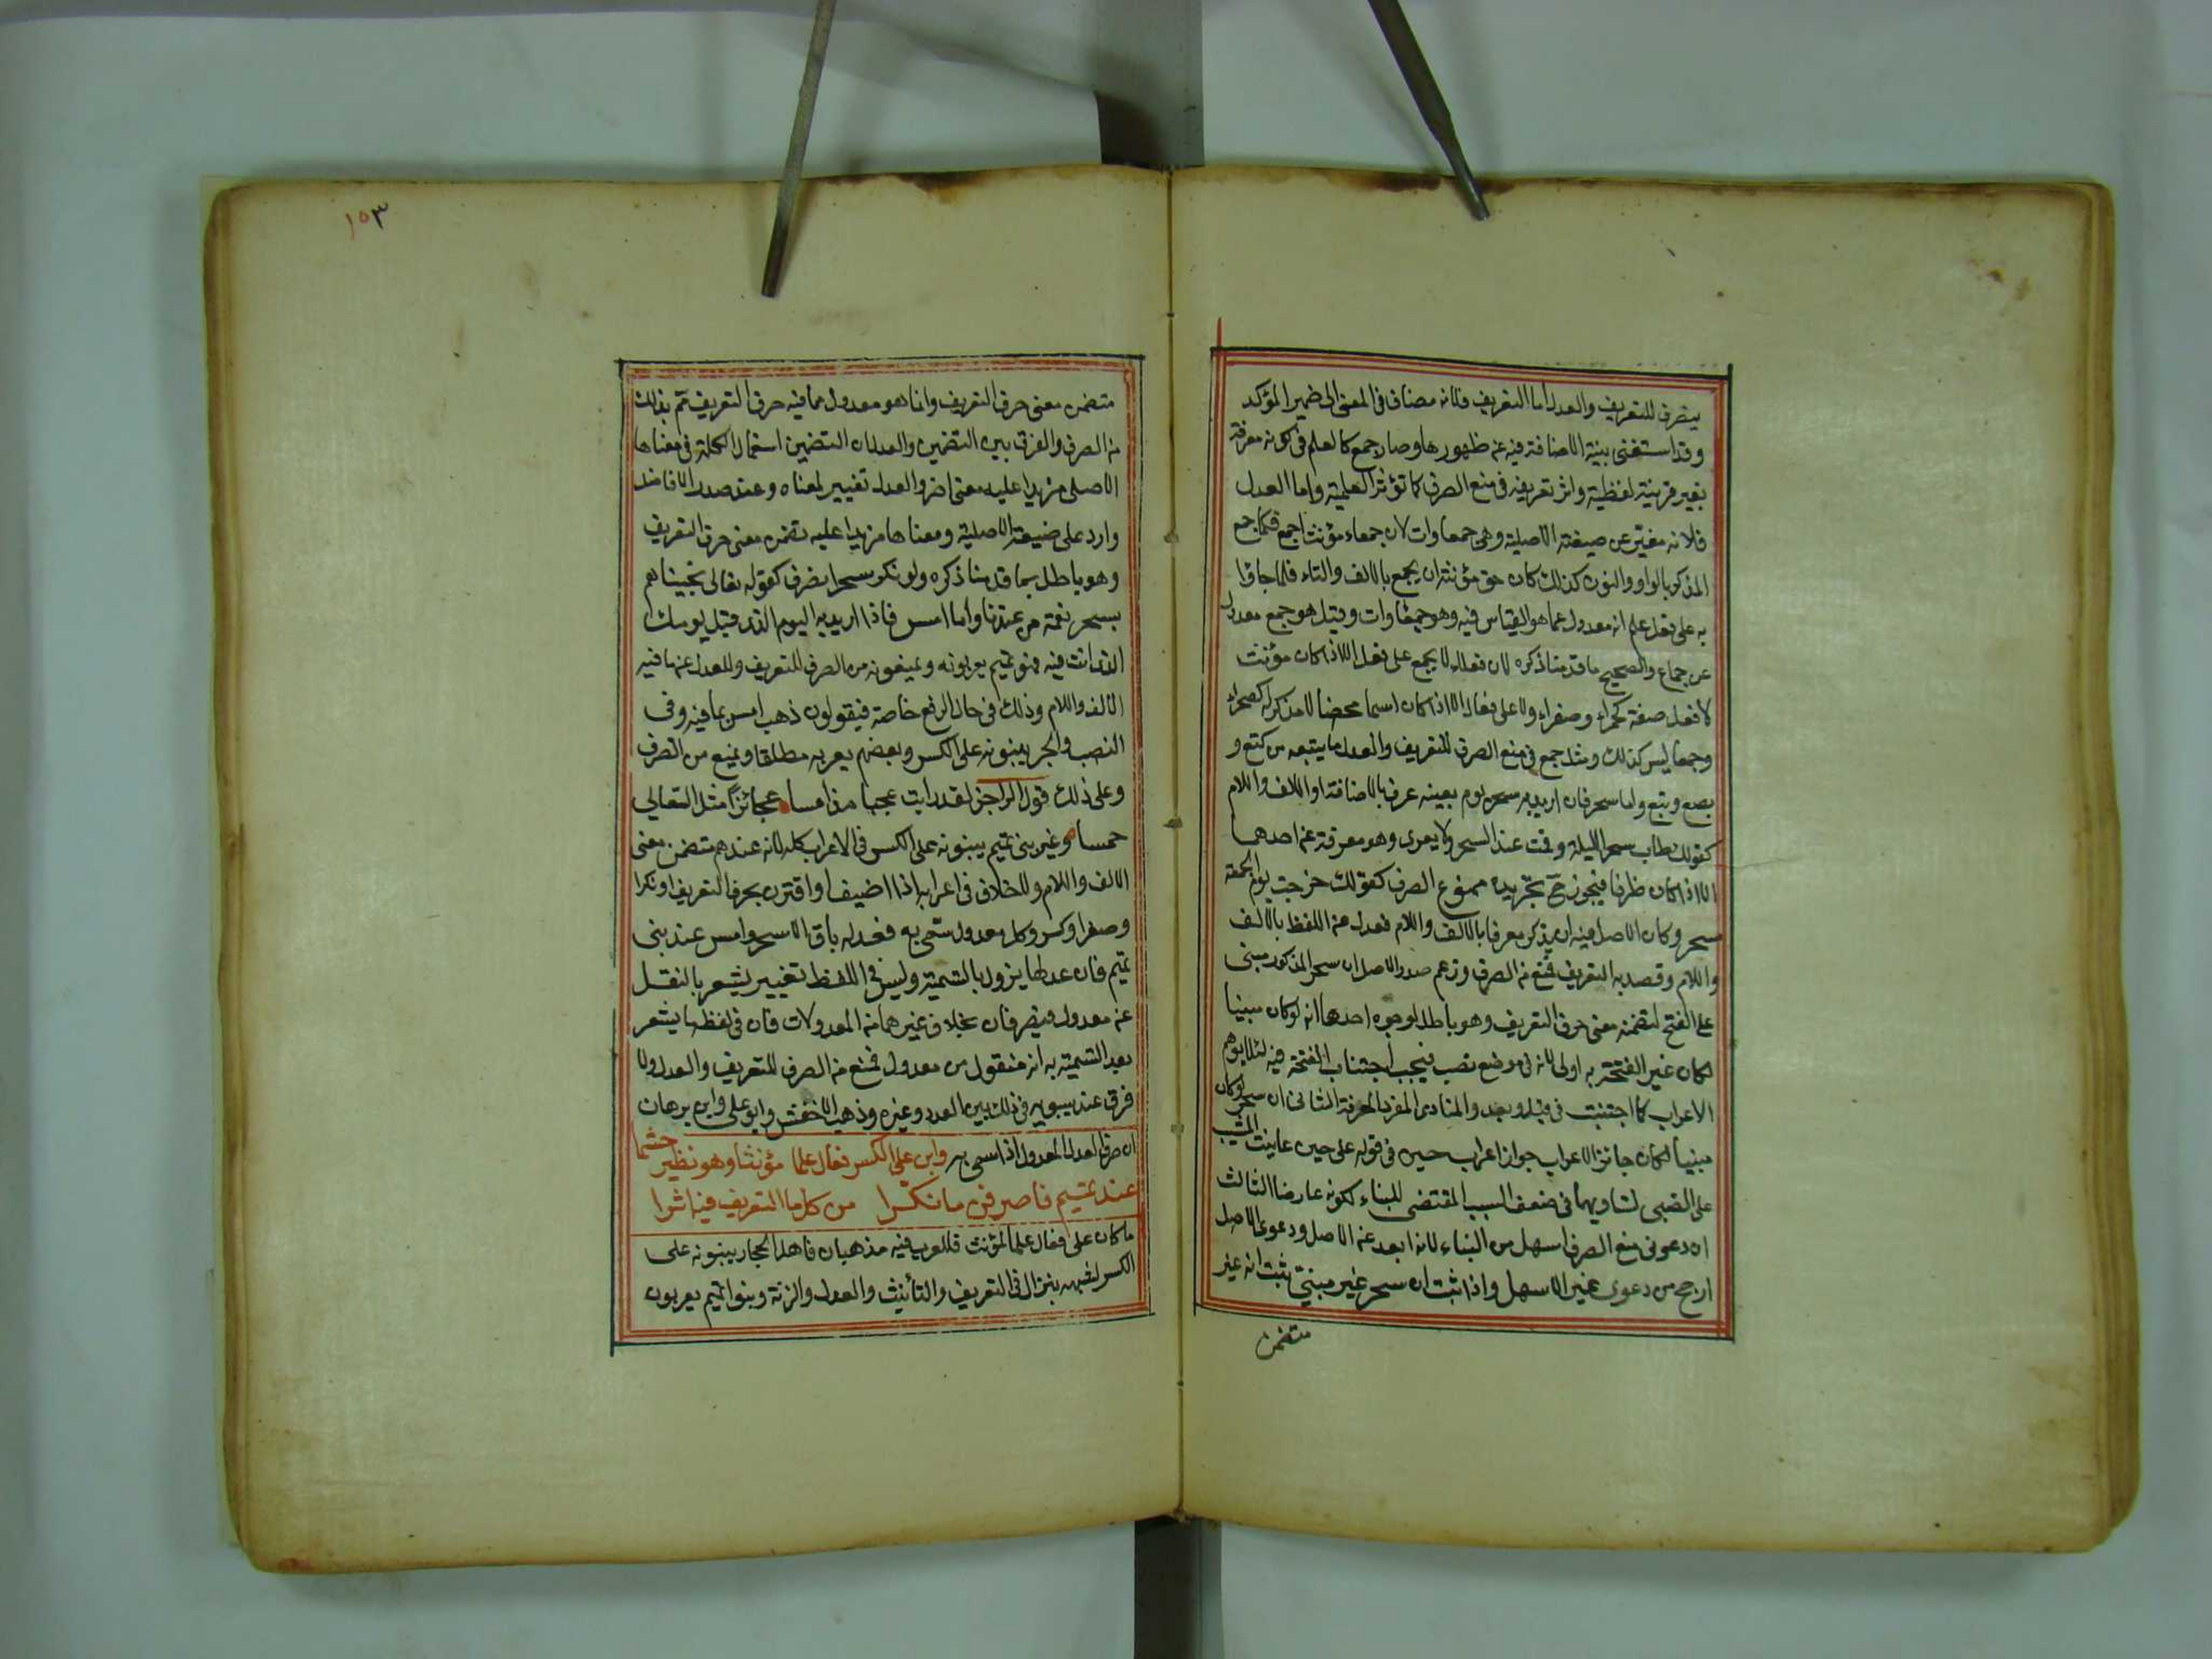 ينصرف للتعريف والعدل اما التعريف فلانه مضاف في المعنى الى ضمير المؤكد
وقد استغنى بنية الاضافة فيه عن ظهورها وصار جمع كالعلم في كونه معرفة
بغير قرينة لفظية واثر تعريفه في منع الصرف كما تؤثر العلمية واما العدل
فلانه مغير عن صيغته الاصلية وهي جمعاوات لان جمعاء مؤنث اجمع فكما جمع
المذكر بالواو والنون كذلك كان حق مؤنثه ان يجمع بالالف والتاء فلما جاؤا
به على فعل علم انه معدول عما هو القياس فيه وهو جمعاوات وقيل هو جمع معدول
عن جماع والصحيح ما قدمنا ذكره لان فعلاء لا يجمع على فعل الا اذا كان مؤنث
لافعل صفة كحمراء وصفراء ولا على فعال الا اذا كان اسما محضا لا مذكر له كصحراء
وجمعا ليس كذلك ومثل جمع في منع الصرف للتعريف والعدل ما يتبعه من كتع و
بصع وبتع واما سحر فان اريد به سحر يوم بعينه عرف بالاضافة او الالف واللام
كقولك طاب سحر الليلة وقمت عند السحر ولا يعرى وهو معرفة عن احدهما
الا اذا كان ظرفا فيجوز ح تجريده ممنوع الصرف كقولك خرجت يوم الجمعة
سحر وكان الاصل فيه ان يذكر معرفا بالالف واللام فعدل عن اللفظ بالالف
واللام وقصد به التعريف فمنع من الصرف وزعم صدر الافاضل ان سحر المذكور مبني
على الفتح لتضمنه معنى حرف التعريف وهو باطل لوجوه احدها انه لو كان مبنيا
لكان غير الفتحة به اولى لانه في موضع نصب فيجب اجتناب الفتحة فيه لئلا يوهم
الاعراب كما اجتنبت في قبل وبعد والمنادى المفرد المعرفة الثاني ان سحر لو كان
مبنيا لكان جائز الاعراب جواز اعراب حين في قوله على حين عاتبت المشيب
على الصبى لتساويهما في ضعف السبب المقتضي للبناء لكونه عارضا الثالث
ان دعوى منع الصرف اسهل من البناء لانه ابعد عن الاصل ودعوى الاصل
ارجح من دعوى غير الاسهل واذا ثبت ان سحر غير مبني ثبت انه غير
متضمن
١٥٣
متضمن معنى حرف التعريف وانما هو معدول عما فيه حرف التعريف ثم بذلك
من الصرف والفرق بين التضمين والعدل ان التضمين استعمال الكلمة في معناها
الاصلي مزيدا عليه معنى اخر والعدل تغيير لمعناه وعند صدر الافاضل
وارد على صيغته الاصلية ومعناها مزيدا عليه تضمن معنى حرف التعريف
وهو باطل بما قدمنا ذكره ولو نكر سحر انصرف كقوله تعالى نجيناهم
بسحر نعمة من عندنا واما امس فاذا اريد به اليوم الذي قبل يومك
الذي انت فيه فبنو تميم يعربونه ويمنعونه من الصرف للتعريف والعدل عن ما فيه
الالف واللام وذلك في حال الرفع خاصة فيقولون ذهب امس بما فيه وفي
النصب والجر يبنونه على الكسر وبعضهم يعربه مطلقا ويمنع من الصرف
وعلى ذلك قول الراجز لقد رايت عجبا مذ امسا عجائزا مثل السعالي
خمسا وغير بني تميم يبنونه على الكسر في الاعراب كله لانه عندهم متضمن معنى
الالف واللام ولا خلاف في اعرابه اذا اضيف او اقترن بحرف التعريف او نكر
وصغر او كسر وكل معدول سمي به فعدله باق الا سحر وامس عند بني
تميم فان عدلهما يزول بالتسمية وليس في اللفظ تغيير يشعر بالنقل
عن معدول فينصرفان بخلاف غيرهما من المعدولات فان في لفظها يشعر
بعد التسمية به انه منقول من معدول فمنع من الصرف للتعريف والعدل ولا
فرق عند سيبويه في ذلك بين العدد وغيره وذهب الاخفش وابو على وابن برهان
ان صرف العدد المعدول اذا سمي به وابن على الكسر فعال علما مؤنثا وهو نظير جشما
عند تميم فاصرفن ما نكرا من كل ما التعريف فيه اثرا
ما كان على فعال علما لمؤنث فللعرب فيه مذهبان فاهل الحجاز يبنونه على
الكسر لشبهه بنزال في التعريف والتأنيث والعدل والزنة وبنو تميم يعربون